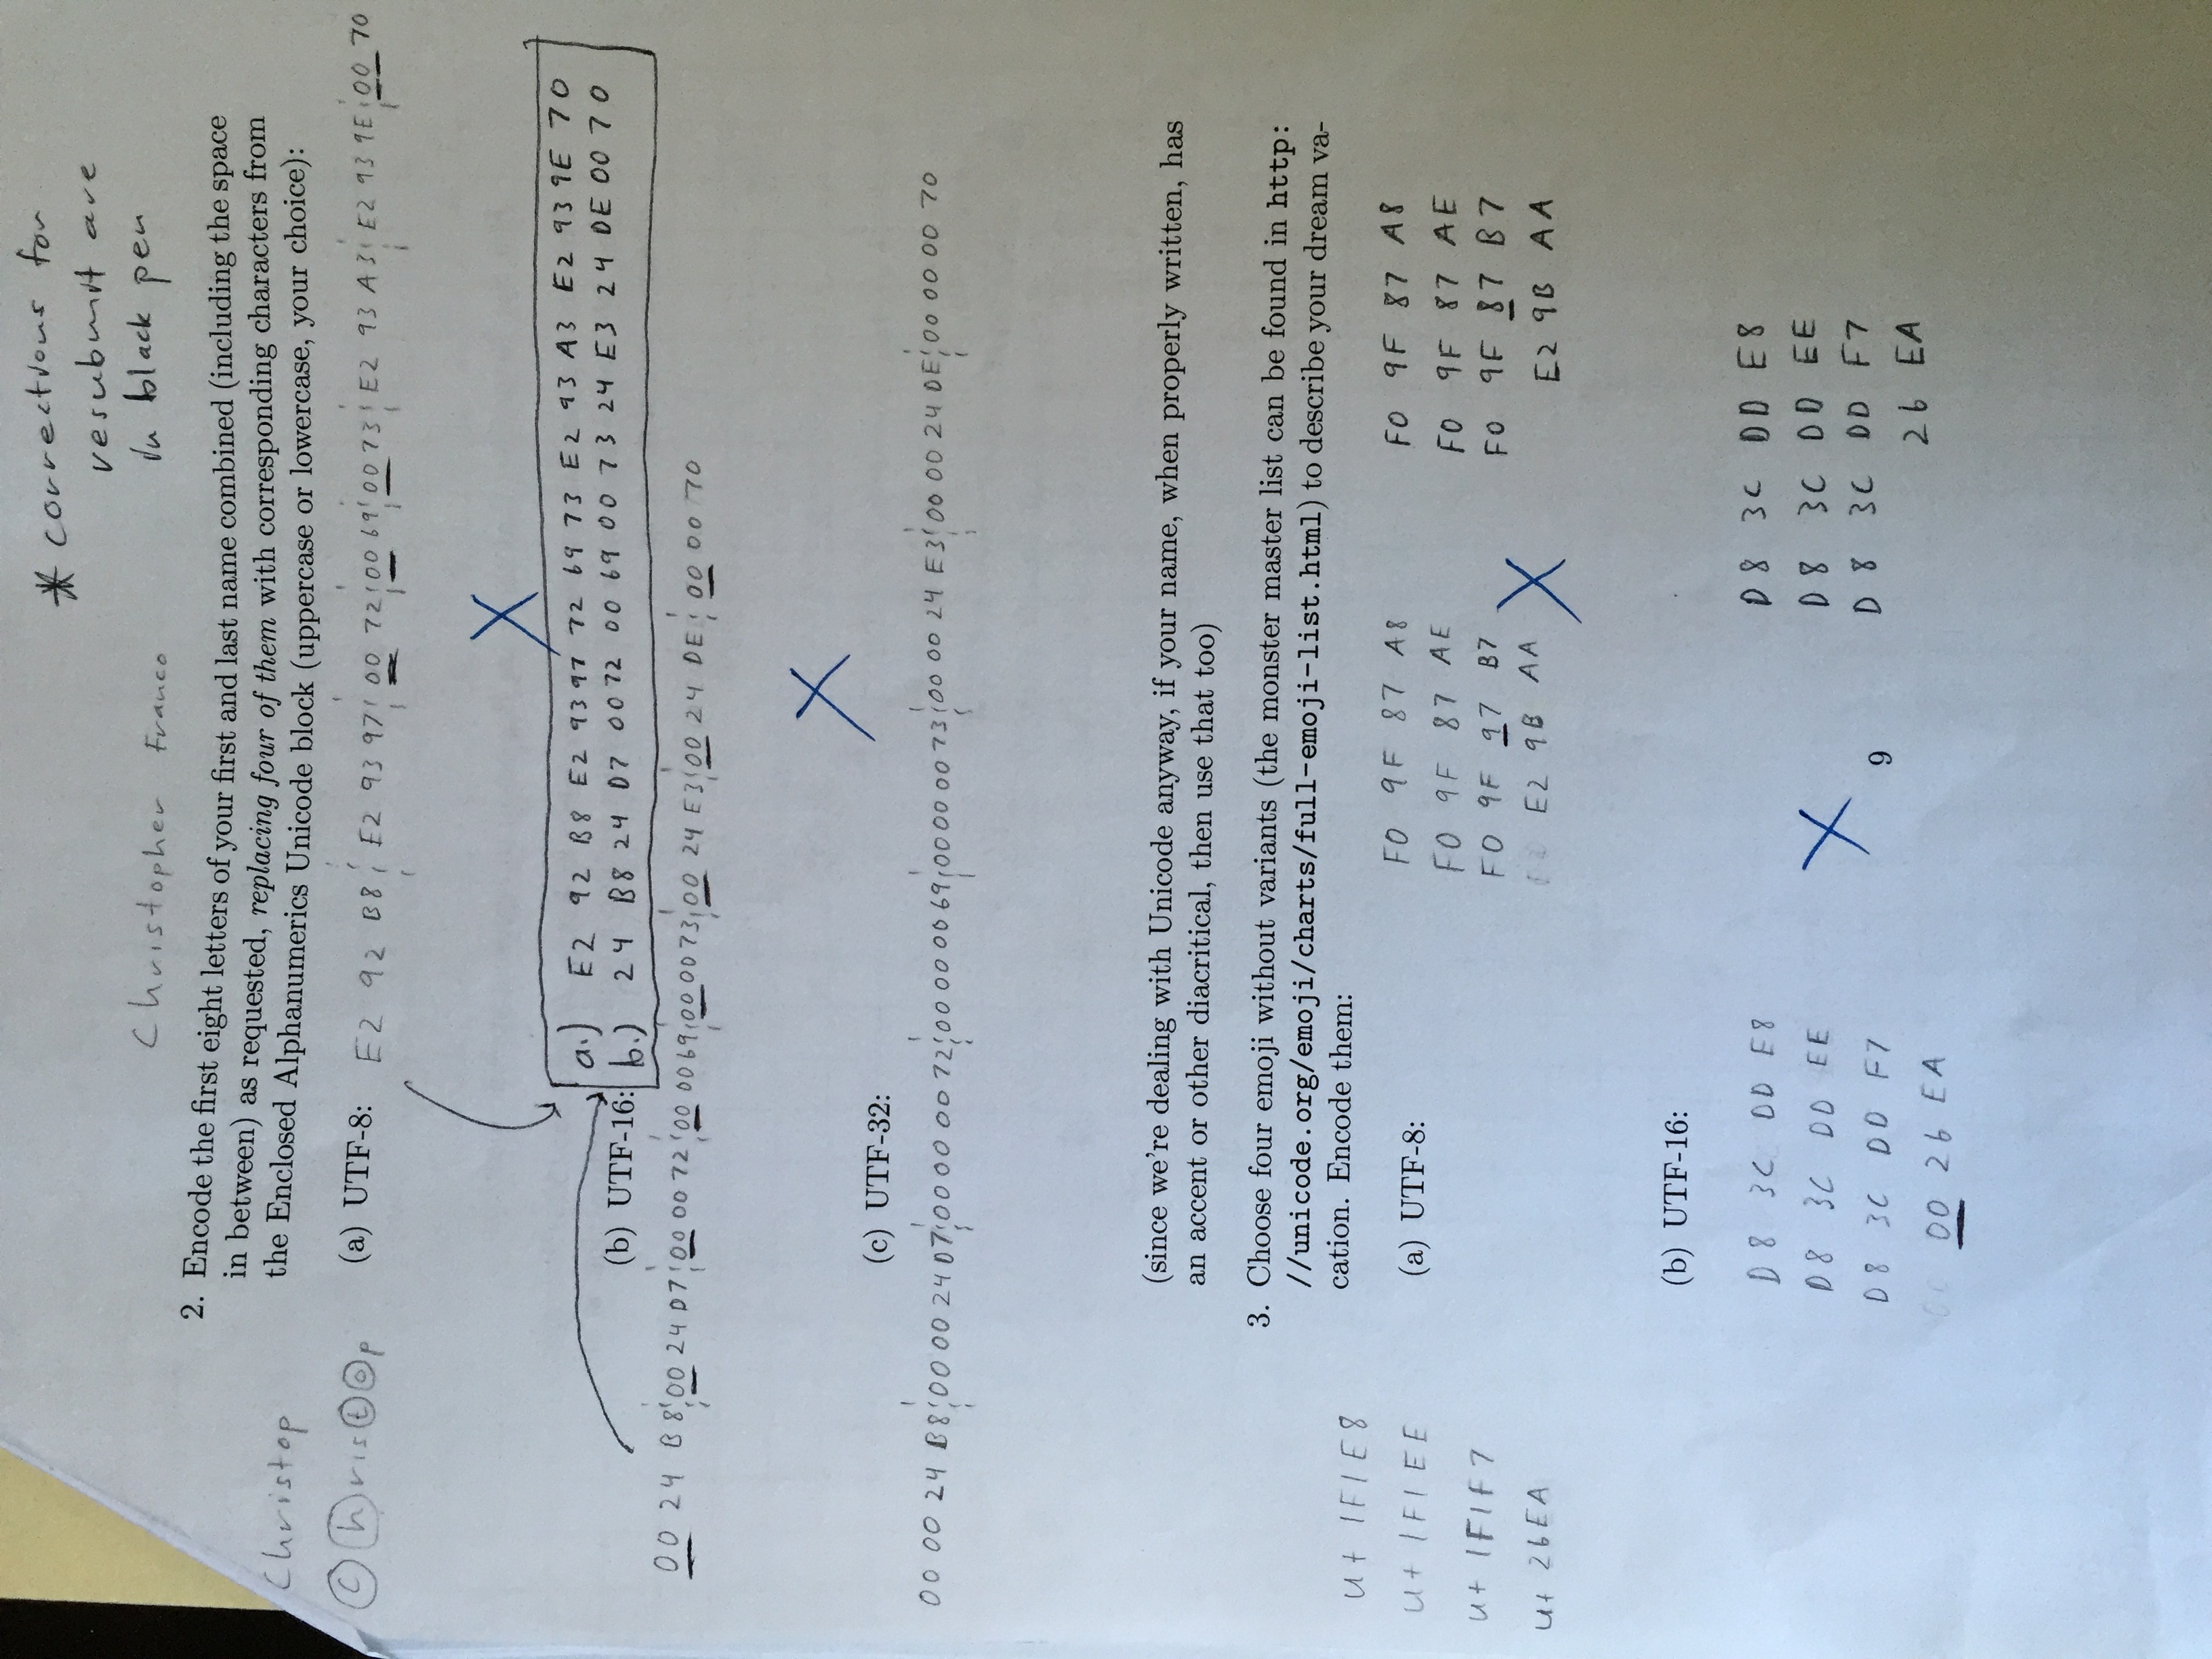 * corrections for
resubmit are
in black pen
Christopher Franco
2. Encode the first eight letters of your first and last name combined (including the space
in between) as requested, replacing four of them with corresponding characters from
the Enclosed Alphanumerics Unicode block (uppercase or lowercase, your choice):
Christop
Ⓒⓗrisⓣⓞp
(a) UTF-8: E2 92 B8 ¦ E2 93 97 ¦ 00 72 ¦ 00 69 ¦ 00 73 ¦ E2 93 A3 ¦ E2 93 9E ¦ 00 70
X
a.) E2 92 B8 E2 93 97 72 69 73 E2 93 A3 E2 93 9E 70
(b) UTF-16: b.) 24 B8 24 D7 00 72 00 69 00 73 24 E3 24 DE 00 70
00 24 B8 ¦ 00 24 D7 ¦ 00 00 72 ¦ 00 00 69 ¦ 00 00 73 ¦ 00 24 E3 ¦ 00 24 DE ¦ 00 00 70
X
(c) UTF-32:
00 00 24 B8 ¦ 00 00 24 D7 ¦ 00 00 00 72 ¦ 00 00 00 69 ¦ 00 00 00 73 ¦ 00 00 24 E3 ¦ 00 00 24 DE ¦ 00 00 00 70
(since we're dealing with Unicode anyway, if your name, when properly written, has
an accent or other diacritical, then use that too)
3. Choose four emoji without variants (the monster master list can be found in http:
//unicode.org/emoji/charts/full-emoji-list.html) to describe your dream va-
cation. Encode them:
U+ 1F1E8
U+ 1F1EE
U+ 1F1F7
U+ 26EA
(a) UTF-8:
F0 9F 87 A8
F0 9F 87 AE
F0 9F 97 B7
E2 9B AA
X
F0 9F 87 A8
F0 9F 87 AE
F0 9F 87 B7
E2 9B AA
(b) UTF-16:
D8 3C DD E8
D8 3C DD EE
D8 3C DD F7
00 26 EA
X
D8 3C DD E8
D8 3C DD EE
D8 3C DD F7
26 EA
9